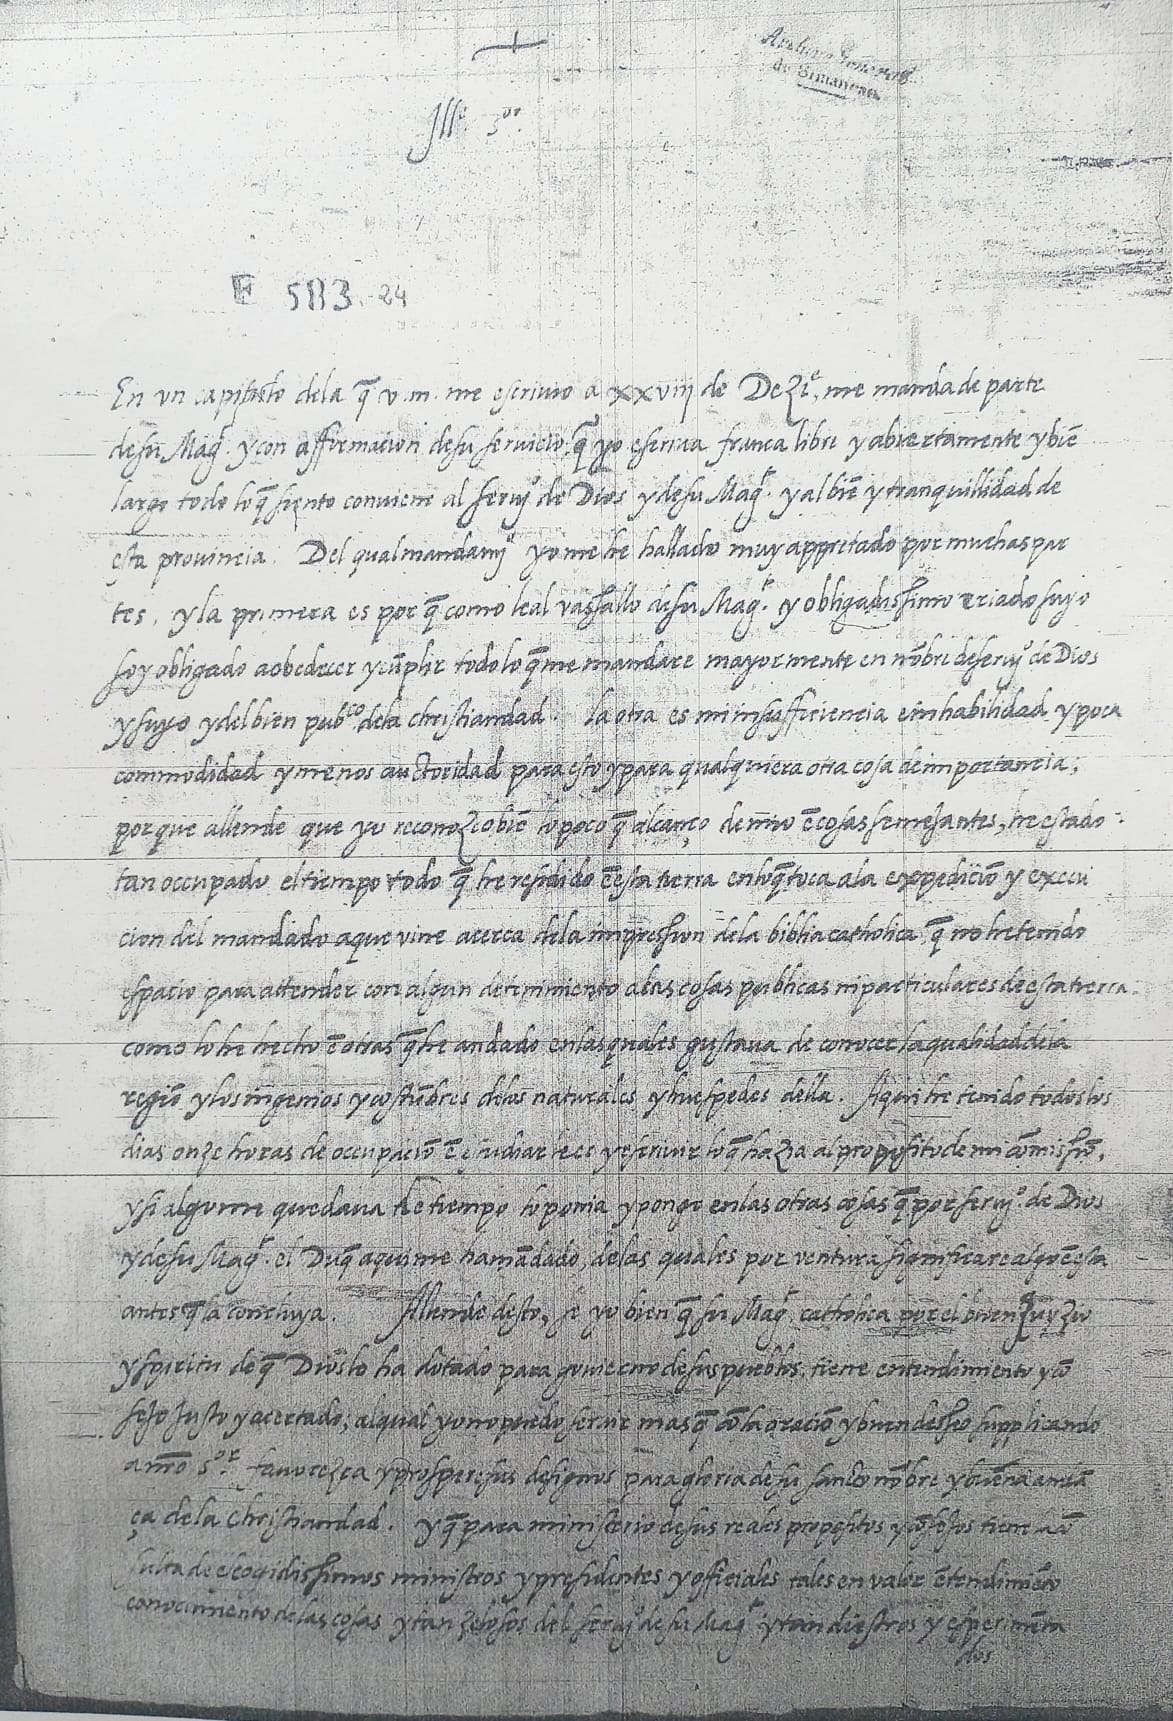 Archivo General
de Simancas
Ille. Sor.
E 583. 24
En vn capitulo dela q̃ v.m. me escriuio a xxviij de Deziẽ, me manda de parte
de su Magt. y con affirmacion de su seruicio q̃ yo escriua franca libre y abiertamente y biẽ
largo todo lo q̃ siento conuiene al seruio de Dios y de su Magt. y al biẽ y tranquillidad de
esta prouincia. Del qual mandamio yo me he hallado muy appretado por muchas par
tes, y la primera es por q̃ como leal vassallo de su Magt. y obligadissimo criado suyo
soy obligado a obedecer y cũplir todo lo q̃ me mandare mayormente en nõbre de seruio de Dios
y suyo y del bien pubco dela christiandad. la otra es mi insufficiencia e inhabilidad y poca
commodidad y menos auctoridad para esto y para qualquiera otra cosa de importancia;
porque allende que yo reconozco biẽ lo poco q̃ alcanço de mio ẽ cosas semejantes, he estado
tan occupado el tiempo todo q̃ he residido ẽ esta tierra en lo q̃ toca a la expediciõ y execu
cion del mandado a que vine acerca dela impression dela biblia catholica q̃ no he tenido
espacio para attender con algun detenimiento a las cosas publicas ni particulares de esta tierra.
como lo he hecho ẽ otras q̃ he andado en las quales gustaua de conocer la qualidad dela
regiõ y los ingenios y costũbres delos naturales y huespedes della. Aqui he tenido todos los
dias onze horas de occupaciõ ẽ estudiar leer y escriuir lo q̃ hazia al proposito de mi comissiõ,
y si alguno quedaua de tiempo lo ponia y pongo en las otras cosas q̃ por seruio. de Dios
y de su Magt. el Duq̃ aqui me ha mãdado, delas quales por ventura significare algo ẽ esta
antes q̃ la concluya. Allende desto, se yo bien q̃ su Magt. catholica por el buen juyzio
y spiritu de q̃ Dios lo ha dotado para gouierno de sus pueblos, tiene entendimiento y cõ
sejo justo y acertado, al qual yo no puedo seruir mas q̃ cõ la oraciõ y buen desseo supplicando
a nr̃o Sor. fauorezca y prospere sus designos para gloria de su sancto nõbre y buena andã
ça dela christiandad. y q̃ para ministerio de sus reales propositos y cõsejos tiene cõ
sulta de escogidissimos ministros y presidentes y officiales tales en valor ẽtendimiẽto
conocimiento delas cosas y tan zelosos del seruio de su Magt. y tan diestros y esperimẽta
dos